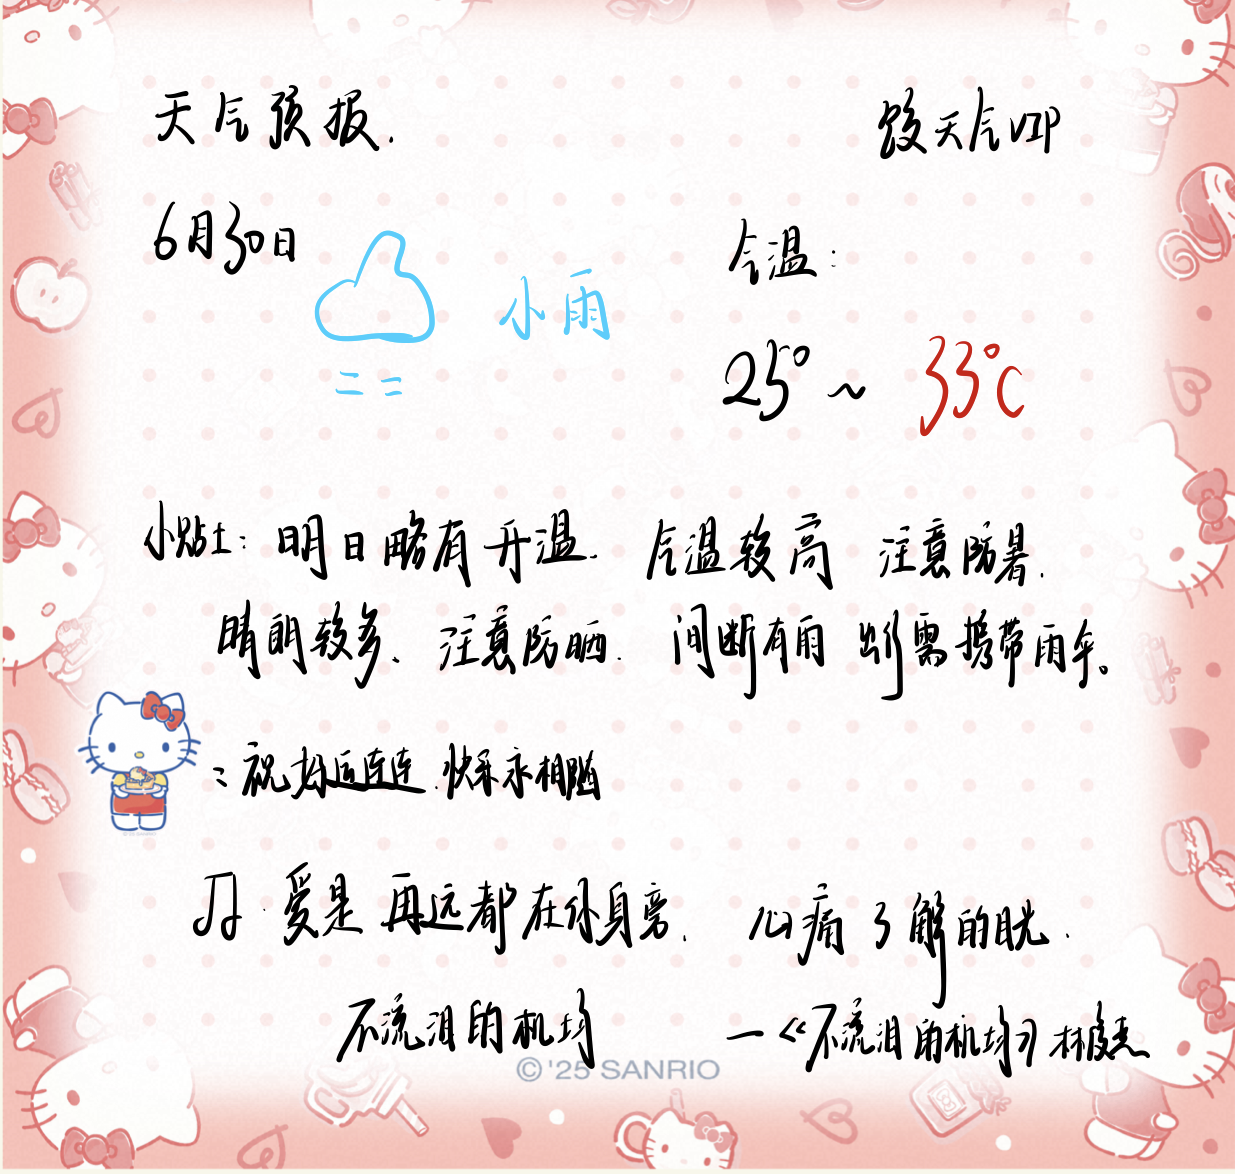 天气预报.
天气VIP
6月30日
小雨
气温:
25°~ 33℃
小贴士: 明日略有升温. 气温较高 注意防暑.
晴朗较多、注意防晒. 间断有雨 出行需携带雨伞。
: 祝好运连连 快乐永相随
爱是 再远都在你身旁. 心痛了解的眼光.
不流泪的机场 —《不流泪的机场》林俊杰
© '25 SANRIO